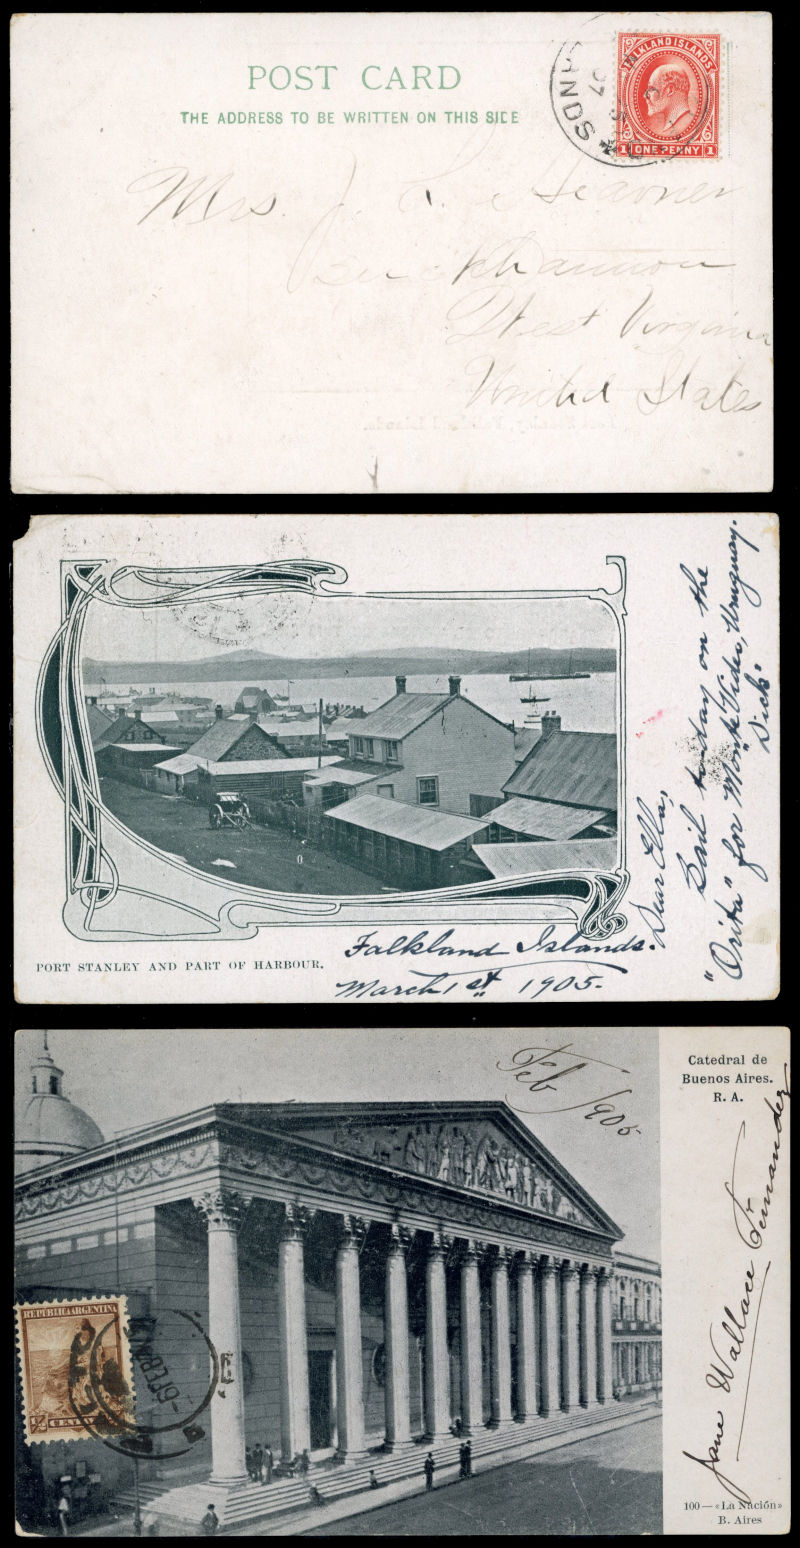 POST CARD
THE ADDRESS TO BE WRITTEN ON THIS SIDE
FALKLAND ISLANDS
1 ONE PENNY 1
Mrs. J. L.
Buckhannon
West Virginia
United States
Port Stanley, Falkland Islands.
PORT STANLEY AND PART OF HARBOUR.
Falkland Islands.
March 1st 1905.
Dear Ella,
Sail to-day on the
"Orita" for Monte Video, Uruguay.
Dick.
Catedral de
Buenos Aires.
R. A.
Feb 1905
REPÚBLICA ARGENTINA
½ CENTAVO
Jane Wallace Fernandez
100 — «La Nación»
B. Aires